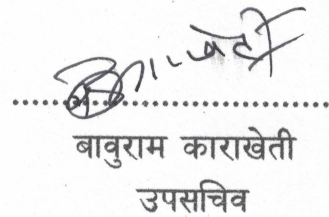 बावुराम काराखेती
उपसचिव